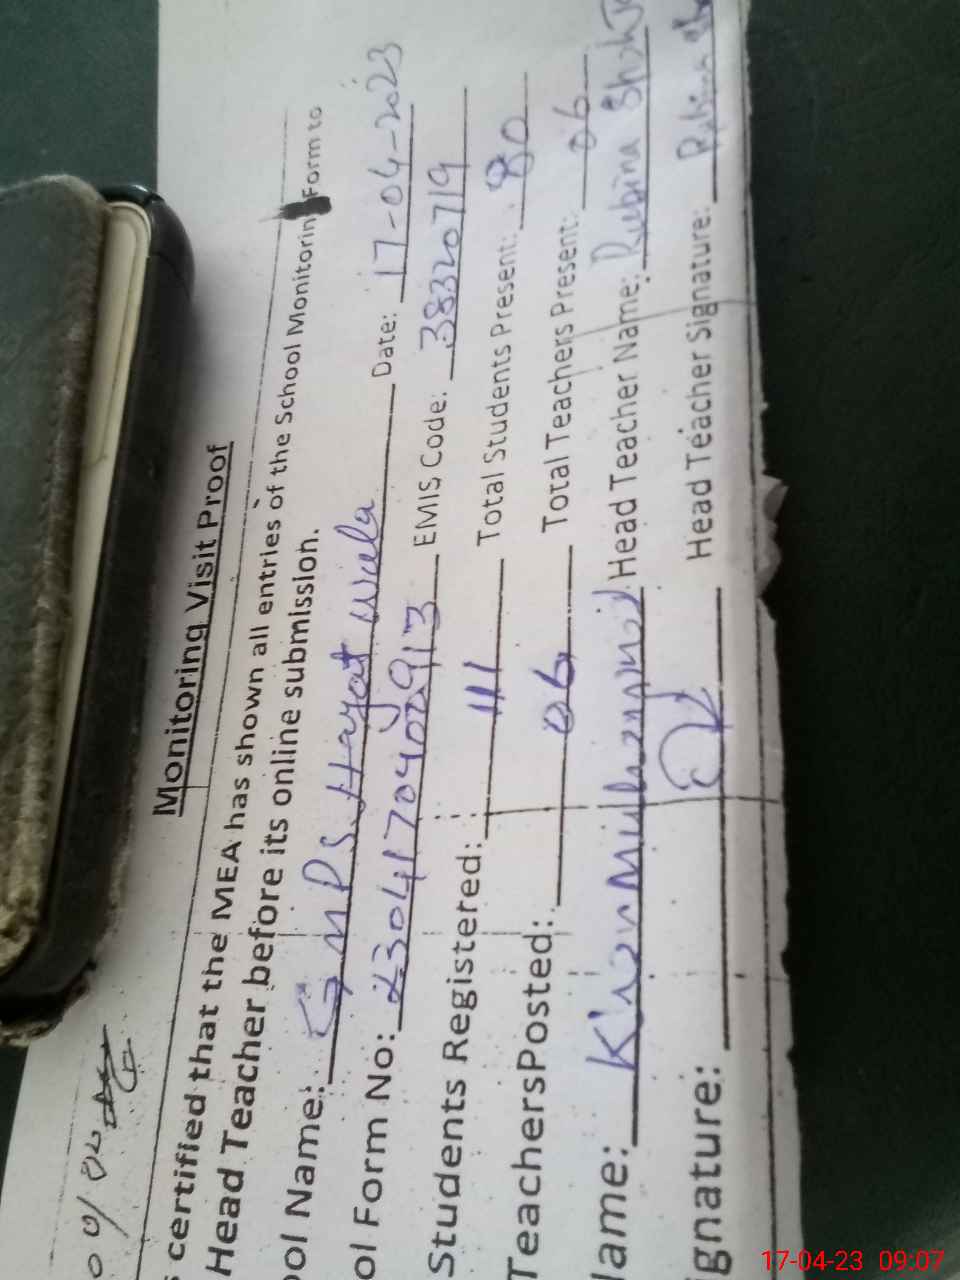 Monitoring Visit Proof
certified that the MEA has shown all entries of the School Monitoring Form to
Head Teacher before its online submission.
ool Name: GMPS Hayat Wala Date: 17-04-2023
ol Form No: 2304170400913 EMIS Code: 38320719
Students Registered: 111 Total Students Present: 80
TeachersPosted: 06 Total Teachers Present: 06
lame: Head Teacher Name: Rubina
ignature: Head Teacher Signature:
17-04-23 09:07